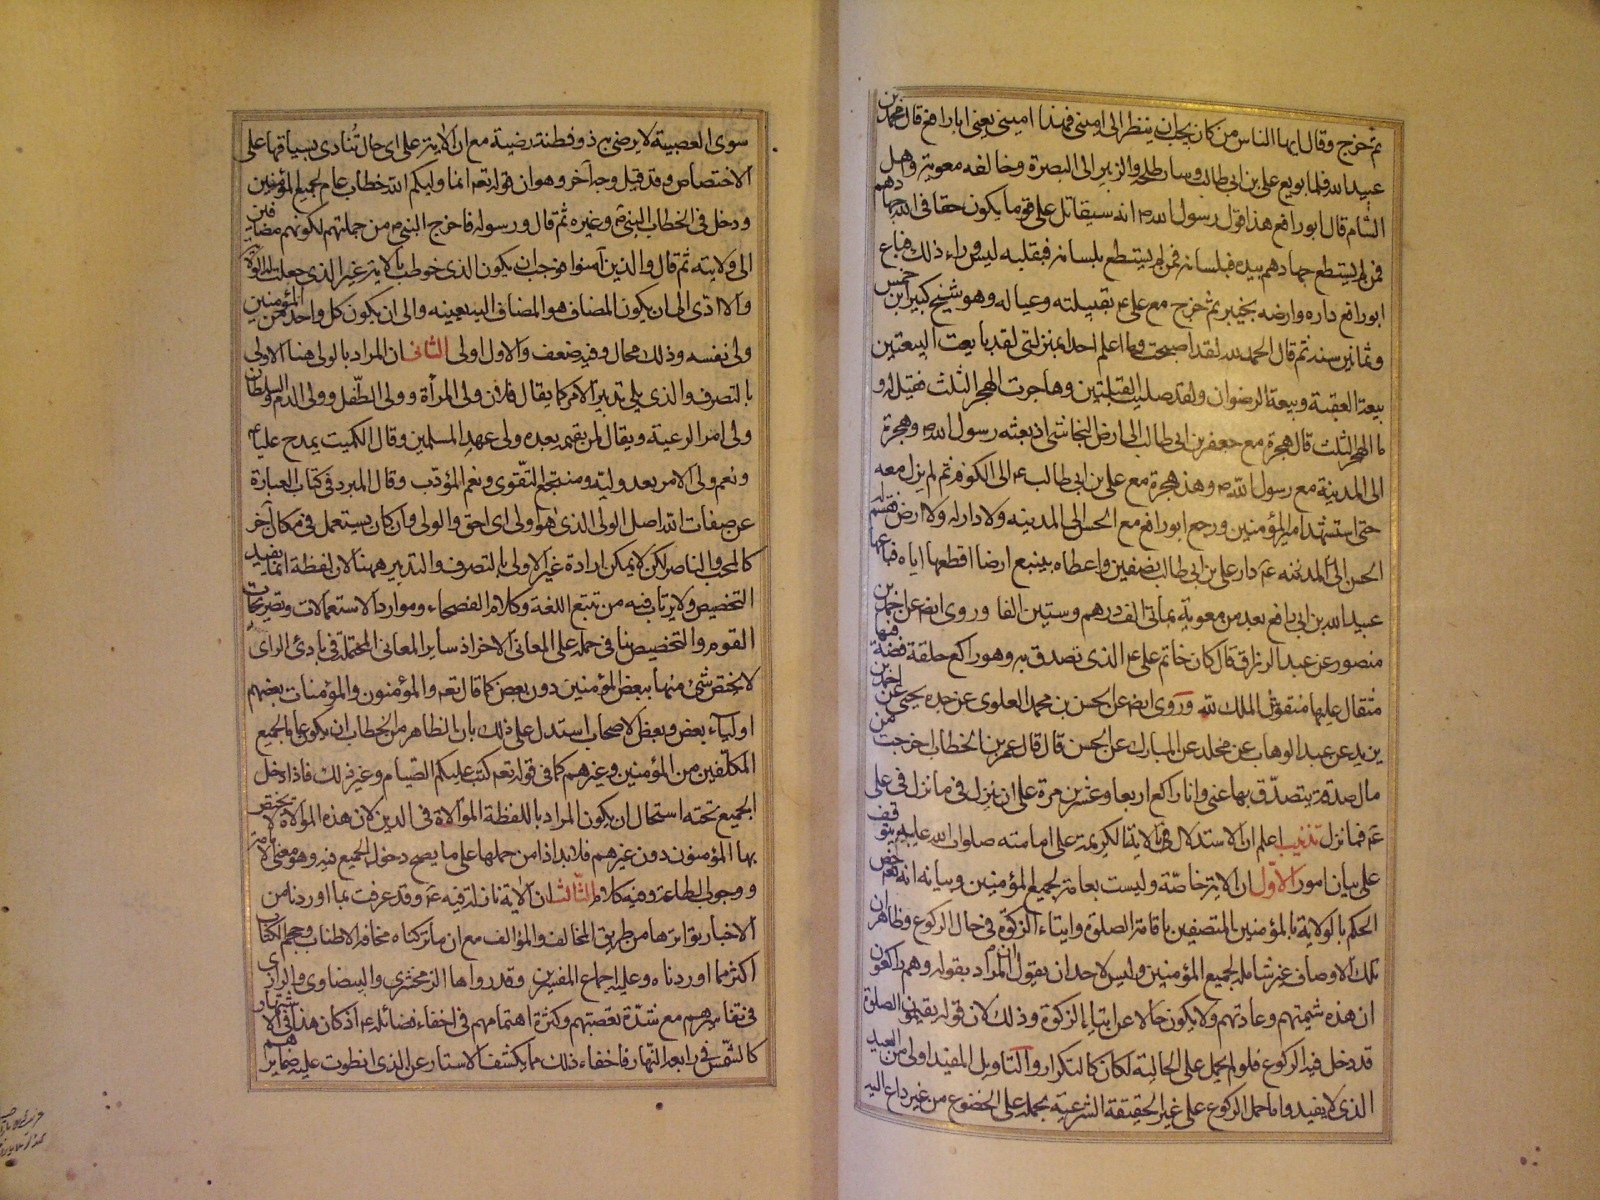 ثم خرج وقال ايها الناس من كان يحب ان ينظر الى اميني فهذا اميني يعني ابا رافع قال محمد بن
عبيد الله فلما بويع علي بن ابي طالب وسار طلحة والزبير الى البصرة وخالفه معوية واهل
الشام قال ابو رافع هذا قول رسول الله ص انه سيقاتل علي قوما يكون حقا في الله جهادهم
فمن لم يستطع جهادهم بيده فبلسانه فمن لم يستطع بلسانه فبقلبه ليس وراء ذلك فباع
ابو رافع داره وارضه بخيبر ثم خرج مع علي ع بقبيلته وعياله وهو شيخ كبير ابن خمس
وثمانين سنه ثم قال الحمد لله لقد اصبحت وما اعلم احدا بمنزلتي لقد بايعت البيعتين
بيعة العقبة وبيعة الرضوان ولقد صليت القبلتين وهاجرت الهجر الثلث فقيل له و
ما الهجر الثلث قال هجرة مع جعفر بن ابي طالب الى ارض النجاشي اذ بعثه رسول الله ص وهجرة
الى المدينة مع رسول الله ص وهذه هجرة مع علي بن ابي طالب ع الى الكوفة ثم لم يزل معه
حتى استشهد امير المؤمنين ورجع ابو رافع مع الحسن الى المدينه ولا دار له ولا ارض فقسم له
الحسن الى المدينه ع دار علي بن ابي طالب نصفين واعطاه بينبع ارضا اقطعها اياه فباعها
عبيد الله بن ابي رافع بعد من معوية بمائتي الف درهم وستين الفا وروى ايضا عن احمد بن
منصور عن عبد الرزاق قال كان خاتم علي ع الذي تصدق به وهو راكع حلقة فضة فيها
مثقال عليها منقوش الملك لله وروى ايضا عن الحسن بن محمد العلوي عن جده يحيى عن احمد بن
يزيد عن عبد الوهاب عن مخلد عن المبارك عن الحسن قال قال عمر بن الخطاب اخرجت من
مالي صدقة يتصدق بها عني وانا راكع اربعا وعشرين مرة على ان ينزل في ما نزل في علي
ع فما نزل تذنيب اعلم ان الاستدلال بهذه الاية الكريمة على امامته صلوات الله عليه يتوقف
على بيان امور الاول ان الاية خاصة وليست بعامة لجميع المؤمنين وبيانه انه تعم خص
الحكم بالولاية بالمؤمنين المتصفين باقامة الصلوة وايتاء الزكوة في حال الركوع وظاهر ان
تلك الاوصاف غير شاملة لجميع المؤمنين وليس لاحد ان يقول ان المراد بقوله وهم راكعون
ان هذه شيمتهم وعادتهم ولا يكون حالا عن ايتاء الزكوة وذلك لان قوله يقيمون الصلوة
قد دخل فيه الركوع فلو لم يحمل على الحالية لكان كالتكرار والتاويل المفيد اولى من البعيد
الذي لا يفيد واما حمل الركوع على غير الحقيقة الشرعية بحمله على الخضوع من غير داع اليه
سوى العصبية لا يرضى به ذو فطنة رضية مع ان الاية على اي حال تنادي بسياقها على
الاختصاص وقد قيل وجه آخر وهو ان قوله تعم انما وليكم الله خطاب عام لجميع المؤمنين
ودخل في الخطاب النبي ص وغيره ثم قال ورسوله فاخرج النبي ص من جملتهم لكونهم مضافين
الى ولايته ثم قال والذين آمنوا فوجب ان يكون الذي خوطب بالاية غير الذي جعلت له الولاية
والا ادى الى ان يكون المضاف هو المضاف اليه بعينه والى ان يكون كل واحد من المؤمنين
ولي نفسه وذلك محال وفيه ضعف والاول اولى الثاني ان المراد بالولي هنا الاولى
بالتصرف والذي يلي تدبير الامر كما يقال فلان ولي المرأة وولي الطفل وولي الدم والسلطان
ولي امر الرعية ويقال لمن يقيمه بعده ولي عهد المسلمين وقال الكميت يمدح عليا ع
ونعم ولي الامر بعد وليه ومنتجع التقوى ونعم المؤدب وقال المبرد في كتاب العبارة
عن صفات الله اصل الولي الذي هو اولى اي احق والولي وان كان يستعمل في مكان آخر
كالمحب والناصر لكن لا يمكن ارادة غير الاولى بالتصرف والتدبير ههنا لان لفظة انما يفيد
التخصيص ولا يرتاب فيه من تتبع اللغة وكلام الفصحاء وموارد الاستعمالات وتصريحات
القوم والتخصيص ينافي حمله على المعاني الاخر اذ سائر المعاني المحتملة في بادئ الراي
لا يختص شئ منها ببعض المؤمنين دون بعض كما قال تعم والمؤمنون والمؤمنات بعضهم
اولياء بعض وبعض الاصحاب استدل على ذلك بان الظاهر من الخطاب ان يكون عاما لجميع
المكلفين من المؤمنين وغيرهم كما في قوله تعم كتب عليكم الصيام وغير ذلك فاذا دخل
الجميع تحته استحال ان يكون المراد باللفظة الموالاة في الدين لان هذه الموالاة يختص
بها المؤمنون دون غيرهم فلا بد اذا من حملها على ما يصح دخول الجميع فيه وهو معنى الامامة
ووجوب الطاعة وفيه كلام الثالث ان الاية نازلة فيه ع وقد عرفت بما اوردنا من
الاخبار تواترها من طريق المخالف والمؤالف مع ان ما تركناه مخافة الاطناب وحجم الكتاب
اكثر مما اوردناه وعليه اجماع المفسرين وقد رواها الزمخشري والبيضاوي والرازي
في تفاسيرهم مع شدة تعصبهم وكثرة اهتمامهم في اخفاء فضائله ع اذ كان هذا في الاشتهار
كالشمس في رابعة النهار فاخفاء ذلك مما يكشف الاستار عن الذي انطوت عليه ضمايرهم